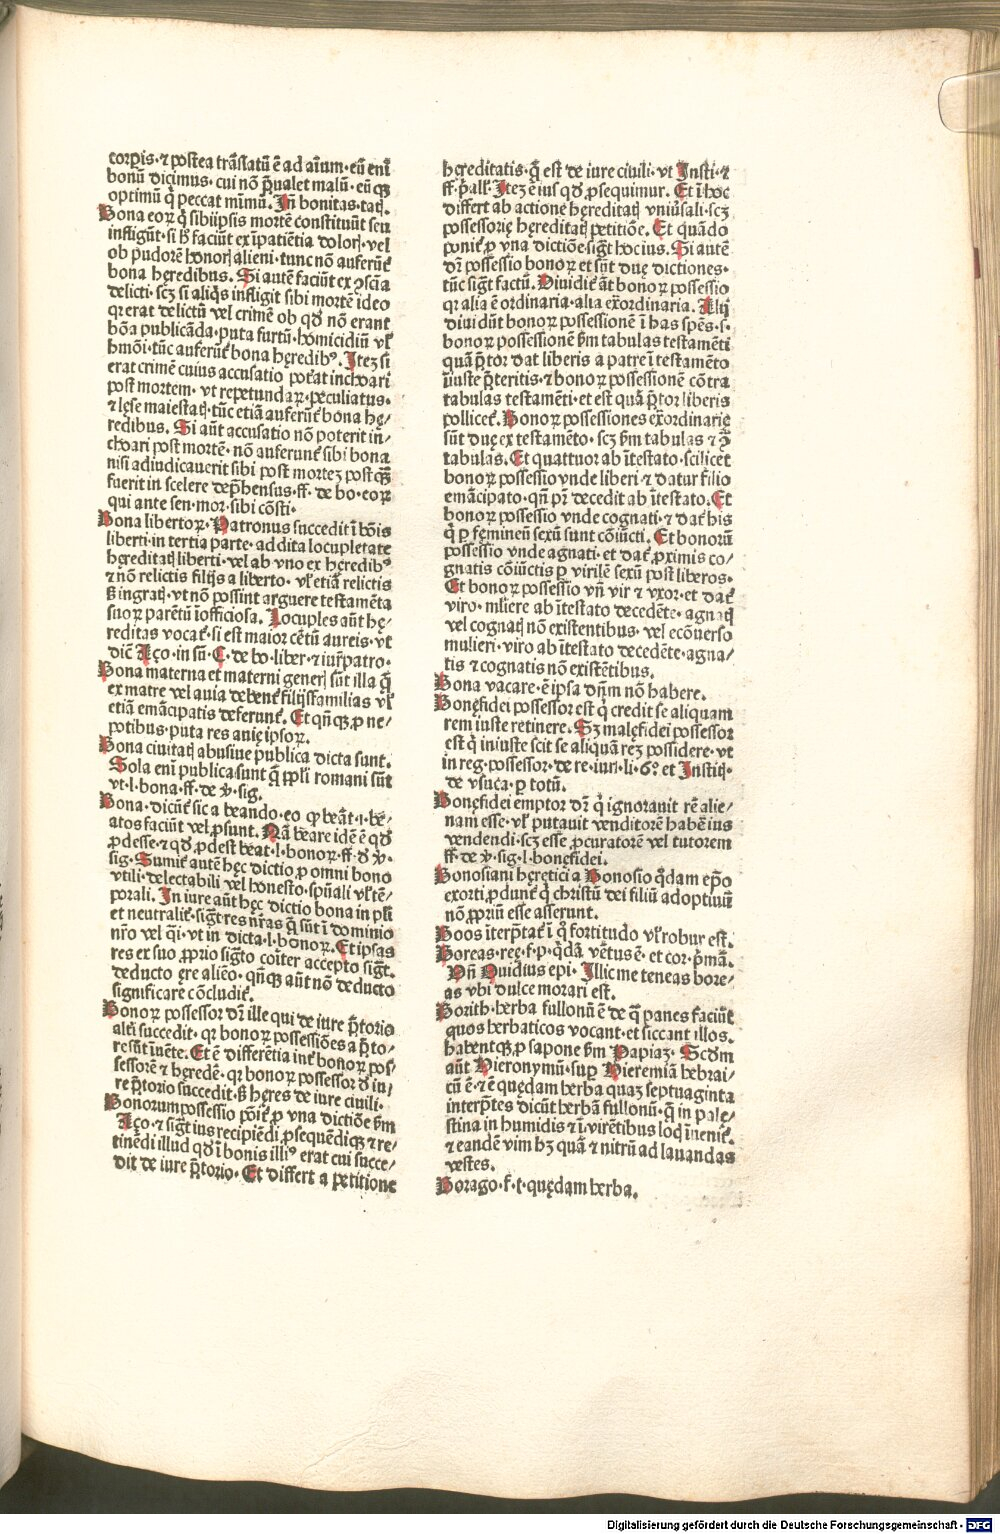 corꝑis·⁊ postea trãslatũ ẽ ad aĩum·eũ enĩ
bonũ dicimus·cui nõ p̃ualet malũ·eũqꝫ
optimũ q̇ peccat mĩmũ. Jñ bonitas·tatꝭ.
Bona eoꝝ q̇ sibiipsis mortẽ constituũt seu
infligũt·si h̃ faciũt ex ĩpatiẽtia dolorꝭ·vel
ob pudorẽ honorꝭ alieni·tunc nõ auferũt᷑
bona hęredibus. Si autẽ faciũt ex ꝯscĩa
delicti·scꝫ si aliq̇s infligit sibi mortẽ ideo
qꝛ erat delictũ vel crimẽ ob qď nõ erant
bõa publicãda·puta furtũ·homicidiũ vł
hmõi·tũc auferũt᷑ bona hęredibꝰ. Jteꝫ si
erat crimẽ cuius accusatio pot᷑at inchoari
post mortem·vt repetundaꝝ·peculiatus·
⁊ lęse maiestatꝭ·tũc etiã auferũt᷑ bona hę⸗
redibus. Si aũt accusatio nõ poterit in⸗
choari post mortẽ·nõ auferunt᷑ sibi bona
nisi adiudicauerit sibi post morteꝫ postqꝫ̃
fuerit in scelere dep̃hensus·ff·de bo·eoꝝ
qui ante sen·mor·sibi cõsti·
Bona libertoꝝ·Patronus succedit ĩ bõis
liberti·in tertia parte·addita locupletate
hęreditatꝭ liberti·vel ab vno ex hęredibꝰ
⁊ nõ relictis filijs a liberto·vł etiã relictis
ß ingratꝭ·vt nõ possint arguere testamẽta
suoꝝ parẽtũ ĩofficiosa. Locuples aũt hę⸗
reditas vocat᷑·si est maior cẽtũ aureis·vt
dicit̃ Aço·in sũ·C·de bo·liber·⁊ iuꝛ̃patro·
Bona materna et materni generꝭ sũt illa q̃
ex matre vel auia debent᷑ filijsfamilias vł
etiã emãcipatis deferunt᷑. Et qñqꝫ ꝓ ne⸗
potibus·puta res anię ipsoꝝ.
Bona ciuitatꝭ abusiue publica dicta sunt.
Sola enĩ publica sunt q̃ ꝑpl̃i romani sũt
vt·l·bona·ff·de ꝟ·sig.
Bona·dicũt᷑ sic a beando·eo ꝙ beãt·i·be⸗
atos faciũt vel ꝓsunt. Nã beare idẽ ẽ qď
ꝓdesse·⁊ qď ꝓdest beat·l·bonoꝝ·ff·ď ꝟ·
sig·Sumit᷑ autẽ hęc dictio ꝓ omni bono
vtili·delectabili vel honesto·spũali vł tẽ⸗
porali. Jn iure aũt hęc dictio bona in płi
et neutralit᷑·sigt̃ res nr̃as q̃ sũt ĩ dominio
nr̃o vel q̇i·vt in dicta·l·bonoꝝ. Et ipsas
res ex suo ꝓprio sigt̃o cõiter accepto sigt̃.
deducto ęre aliẽo·qñqꝫ aũt nõ deducto
significare cõcludit᷑.
Bonoꝝ possessor dr̃ ille qui de iure p̃torio
alt᷑i succedit·qꝛ bonoꝝ possessiões a p̃to⸗
resũt ĩuẽte. Et ẽ differẽtia int᷑ bonoꝝ pos⸗
sessorẽ ⁊ hęredẽ·qꝛ bonoꝝ possessor ď iu⸗
re p̃torio succedit·ß hęres de iure ciuili.
Bonorumpossessio põit᷑ ꝓ vna dictiõe ßm
Aço·⁊ sigt̃ ius recipiẽdi ꝓsequẽdiqꝫ ⁊ re⸗
tinẽdi illud qď ĩ bonis illiꝰ erat cui succe⸗
dit de iure p̃torio. Et differt a petitione
hęreditatis·q̃ est de iure ciuili·vt Jnsti·⁊
ff·p̃all·Jteꝫ ẽ ius qď ꝓsequimur. Et ĩ hoc
differt ab actione hęreditatꝭ vniũsali·scꝫ
possessorię hęreditatꝭ petitiõe. Et quãdo
ponit᷑ ꝓ vna dictiõe·sigt̃ hoc ius. Si autẽ
dr̃ possessio bonoꝝ et sũt duę dictiones·
tũc sigt̃ factũ. Diuidit᷑ ãt bonoꝝ possessio
qꝛ alia ẽ ordinaria·alia exõrdinaria. Alij
diuidũt bonoꝝ possessionẽ ĩ has spẽs·s·
bonoꝝ possessionẽ ßm tabulas testamẽti
quã p̃tor dat liberis a patre ĩ testamẽto
ĩiuste p̃teritis·⁊ bonoꝝ possessionẽ cõtra
tabulas testamẽti·et est quã p̃tor liberis
pollicet᷑. Bonoꝝ possessiones exõrdinarię
sũt duę ex testamẽto·scꝫ ßm tabulas ⁊ ꝯ̃
tabulas. Et quattuor ab ĩtestato·scilicet
bonoꝝ possessio vnde liberi·⁊ datur filio
emãcipato·qñ pr̃ decedit ab ĩtestato. Et
bonoꝝ possessio vnde cognati·⁊ dat᷑ his
q̇ ꝑ fęmineũ sexũ sunt cõiũcti. Et bonorũ
possessio vnde agnati·et dat᷑ ꝓximis co⸗
gnatis cõiũctis ꝑ virilẽ sexũ post liberos.
Et bonoꝝ possessio vñ vir ⁊ vxor·et dat᷑
viro·mliere ab ĩtestato decedẽte·agnatꝭ
vel cognatꝭ nõ existentibus·vel ecõuerso
mulieri·viro ab ĩtestato decedẽte·agna⸗
tis ⁊ cognatis nõ existẽtibus.
Bona vacare·ẽ ipsa dñm nõ habere.
Bonęfidei possessor est q̇ credit se aliquam
rem iuste retinere. Sꝫ malęfidei possessor
est q̇ iniuste scit se aliquã reꝫ possidere·vt
in reg·possessor·de re·iuri·li·6º et Jnstiꝭ·
de vsuca·ꝑ totũ.
Bonęfidei emptor dr̃ q̇ ignorauit rẽ alie⸗
nam esse·vł putauit venditorẽ habẽ ius
vendendi·scꝫ esse ꝓcuratorẽ vel tutorem
ff·de ꝟ·sig·l·bonęfidei.
Bonosiani hęretici a Bonosio q̇dam ep̃o
exorti ꝓdunt᷑ q̇ christũ dei filiũ adoptiuũ
nõ ꝓpriũ esse asserunt.
Boos ĩterp̃tat᷑ ĩ qͦ fortitudo vł robur est.
Boreas·ręę·f·p·q̇dã vẽtus ẽ·et cor·p̃mã.
Vñ Ouidius epi·Jllic me teneas bore⸗
as vbi dulce morari est.
Borith·herba fullonũ ẽ de q̃ panes faciũt
quos herbaticos vocant·et siccant illos.
habentqꝫ ꝓ sapone ßm Papiaꝫ·Scďm
aũt Hieronymũ·suꝑ Hieremiã hebrai⸗
cũ ẽ·⁊ ẽ quędam herba quaꝫ septuaginta
interp̃tes dicũt herbã fullonũ·q̃ in pale⸗
stina in humidis ⁊ ĩ virẽtibus locꝭ ĩuenit᷑·
⁊ eandẽ vim hꝫ quã ⁊ nitrũ ad lauandas
vestes.
Borago·f·t·quędam herba.
Digitalisierung gefördert durch die Deutsche Forschungsgemeinschaft - DFG